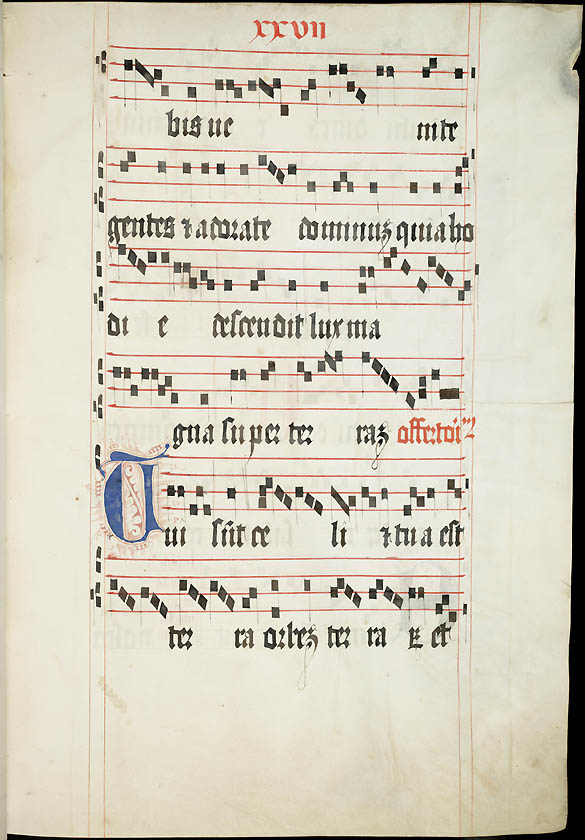 xxvii
bis ue nite
gentes ⁊ adorate dominuʒ quia ho
di e descendit lux ma
gna super ter raʒ offertoiū
Tui sūt ce li ⁊ tua est
ter ra orbeʒ ter ra R et